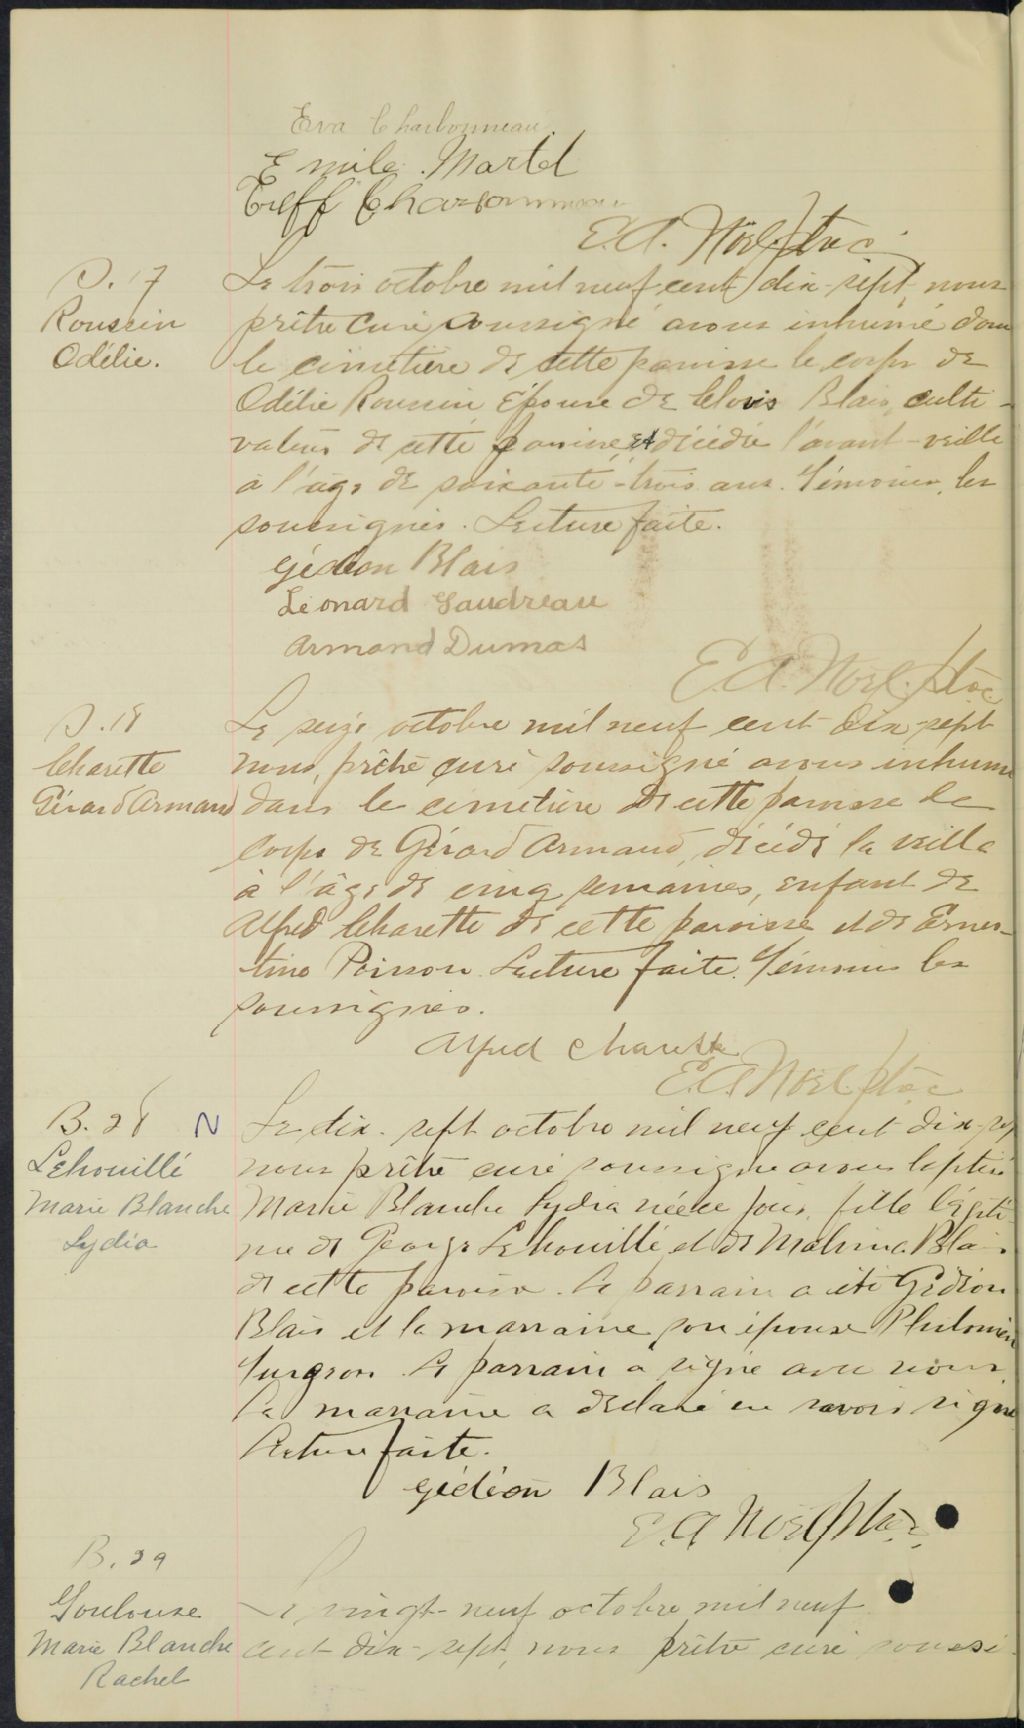 Eva Charbonneau.
Emile Martel
Treff Charbonneau
E. A. Noël ptre c
S. 17
Roussin
Odélie.
Le trois octobre mil neuf cent dix-sept, nous
prêtre curé soussigné avons inhumé dans
le cimetière de cette paroisse le corps de
Odélie Roussin épouse de Clovis Blais, culti-
vateur de cette paroisse, et décédée l'avant-veille
à l'âge de soixante-trois ans. Témoins, les
soussignés. Lecture faite.
Gédéon Blais
Léonard Gaudreau
Armand Dumas
E. A. Noël. ptre c
S. 18
Charette
Gérard Armand
Le seize octobre mil neuf cent dix-sept
nous, prêtre curé soussigné avons inhumé
dans le cimetière de cette paroisse le
corps de Gérard Armand, décédé la veille
à l'âge de cinq semaines, enfant de
Alfred Charette de cette paroisse et de Ernes-
tine Poisson. Lecture faite. Témoins les
soussignés.
Alfred Charette
E. A. Noël ptre c
B. 28 N
Lehouillé
Marie Blanche
Lydia
Le dix-sept octobre mil neuf cent dix-sept
nous prêtre curé soussigné avons baptisé
Marie Blanche Lydia née ce jour, fille légiti-
me de George Lehouillé et de Malvina Blais
de cette paroisse. Le parrain a été Gédéon
Blais et la marraine son épouse Philomène
Turgeon. Le parrain a signé avec nous.
La marraine a déclaré ne savoir signer
Lecture faite.
Gédéon Blais
E. A. Noël ptre c.
B. 29
Toulouse
Marie Blanche
Rachel
Le vingt-neuf octobre mil neuf
cent dix-sept, nous prêtre curé soussi